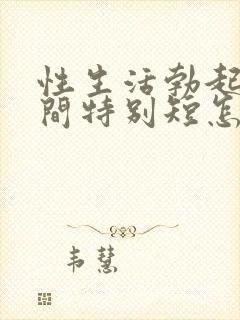 性生活勃起
間特别短怎
韦慧